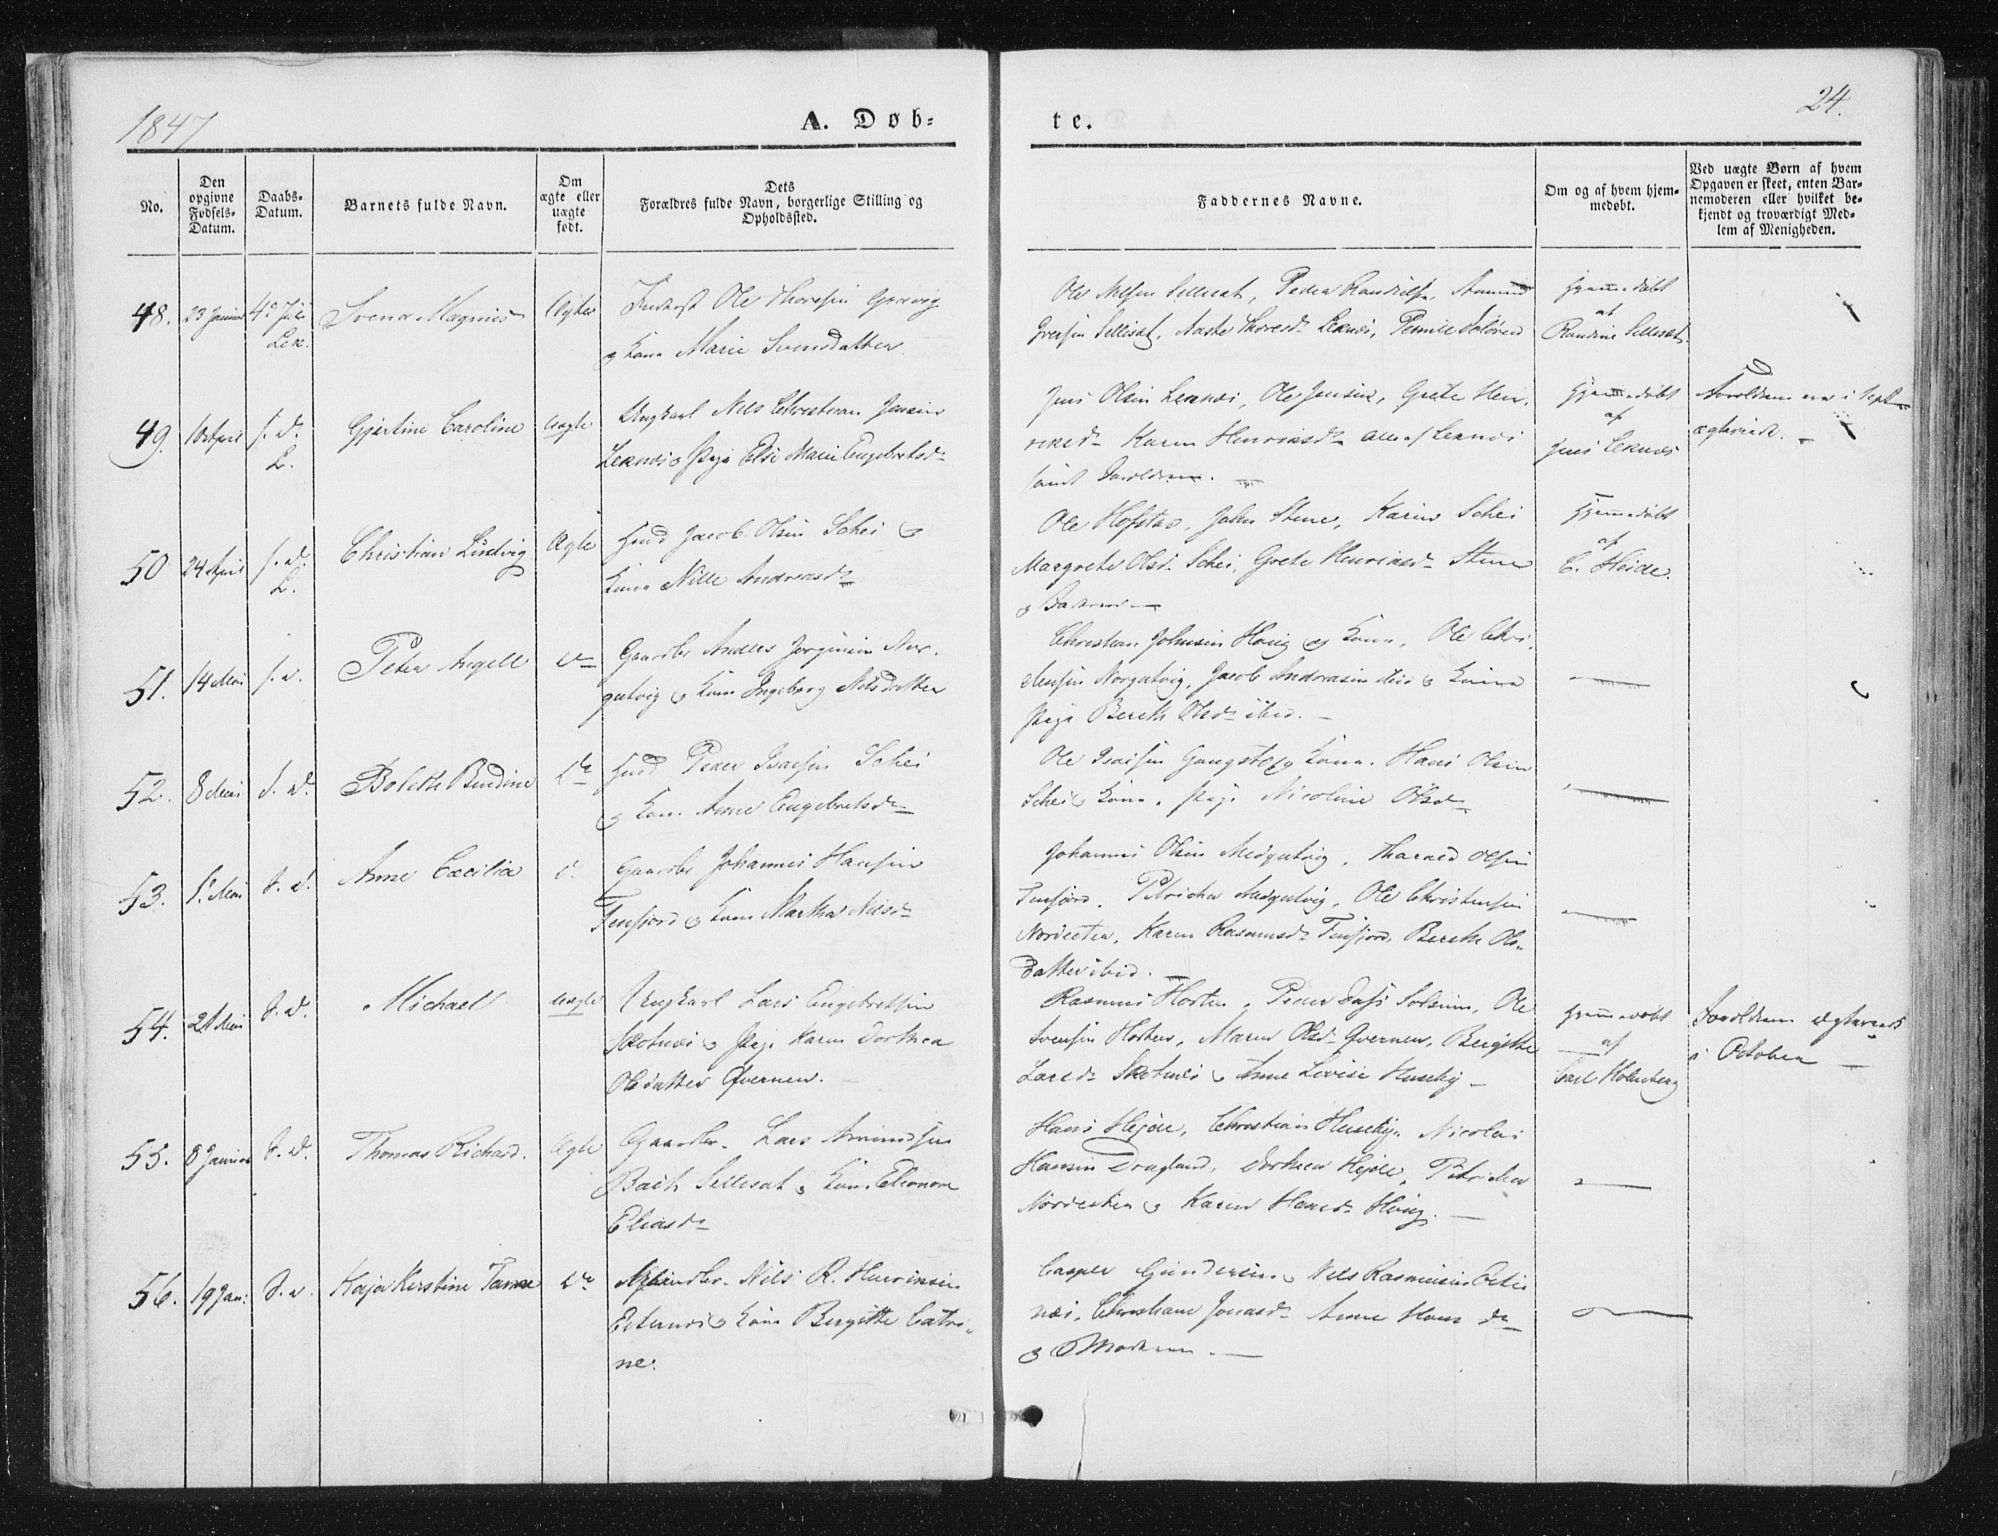 1847
A. Døb-
te.
24.
No.
Den
opgivne
Fødsels-
Datum.
Daabs-
Datum.
Barnets fulde Navn.
Om
ægte eller
uægte
født.
Dets
Forældres fulde Navn, borgerlige Stilling og
Opholdssted.
Faddernes Navne.
Om og af hvem hjem-
medøbt.
Ved uægte Børn af hvem
Opgaven er skeet, enten Bar-
nemoderen eller hvilket be-
kjendt og troværdigt Med-
lem af Menigheden.
48. 23 Januar 4de Juli
Lek.
Svend Magnus
Ægte
Ole Thoresen
Kone Marie Svensdatter
Ole Nelsen Sellisat, Peder
Sellisat,
Hjemmedøbt
af
Randine Sellisat
49. 10 April s. d.
L.
Gjertine Caroline
Uægte
Ungkarl Nils Christian Jensen
Leknæs & Pige Else Marie Engebretsd.
Jens Olsen Leknæs, Ole Jensen, Grete Hen-
riksd. Karen Henriksd. alle af Leknæs
samt Forældrene.
Hjemmedøbt
af
Jens Leknæs
Forældrene ere i Sept.
ægteviede.
50 24 April s. d.
L.
Christian Ludvig
Ægte
Huusmd Jacob Olsen Schei &
Kone Nille Andreasd.
Ole Hofstad, John Stene, Karen Schei
Margrete Olsd. Schei, Grete Henriksd. Stene
Hjemmedøbt
af
C. Heide.
51. 14 Mai s. d.
Peter Angell
do
Gaardbr Anders Jørgensen Nor-
gutvig & Kone Ingeborg Nilsdatter
Christian Johnsen Høvig og Kone, Ole Chri-
stensen Norgutvig, Jacob Andreasen & Kone
Pige Bereth Olsd. ibid.
52. 8 Mai s. d.
Bolette Bendine
do
Huusmd Peder Isacsen Schei
& Kone Anne Engebretsd.
Ole Isacsen Gangstø & Kone. Hans Olsen
Schei & Kone. Pige Nicoline Olsd.
53. 1. Mai s. d.
Anne Cæcilia
do
Gaardbr Johannes Hansen
Finfjord & Kone Martha Nilsd.
Johannes Olsen Medgutvig, Olsen
Finfjord. Petricha Medgutvig, Ole Christensen
Nordester, Karen Rasmusd. Finfjord, Bereth Ols-
datter ibid.
54. 21 Mai s. d.
Michael
Uægte
Ungkarl Lars Engebretsen
Skotnæs & Pige Karen Dorthea
Olsdatter Qvernen.
Rasmus Horten, Peder Ole
Svensen Horten, Maren Olsd. Qvernen, Birgitte
Larsd. Skotnæs & Anne Lovise Huseby
Hjemmedøbt
af
Carl Holmberg
Forældrene ægteviede
i October
55. 8 Januar s. d.
Thomas Richard.
Ægte
Gaardbr. Lars Amundsen
Bach Sellisat & Kone Eleonore
Eliasd.
Hans Hejde, Christian Huseby, Nicolai
Hansen Dragland, Dorthea Hejde, Petricha
Nordester & Karen Hansd. Høvig.
56. 19 Jan: s. d.
Kaja Kerstine Tanne
do
Nils R. Henriksen
Externæs & Kone Birgitte Catri-
ne.
Casper Gundersen, Nils Rasmussen
næs, Christiane Jonasd. Anne Hansd.
& Moderen.